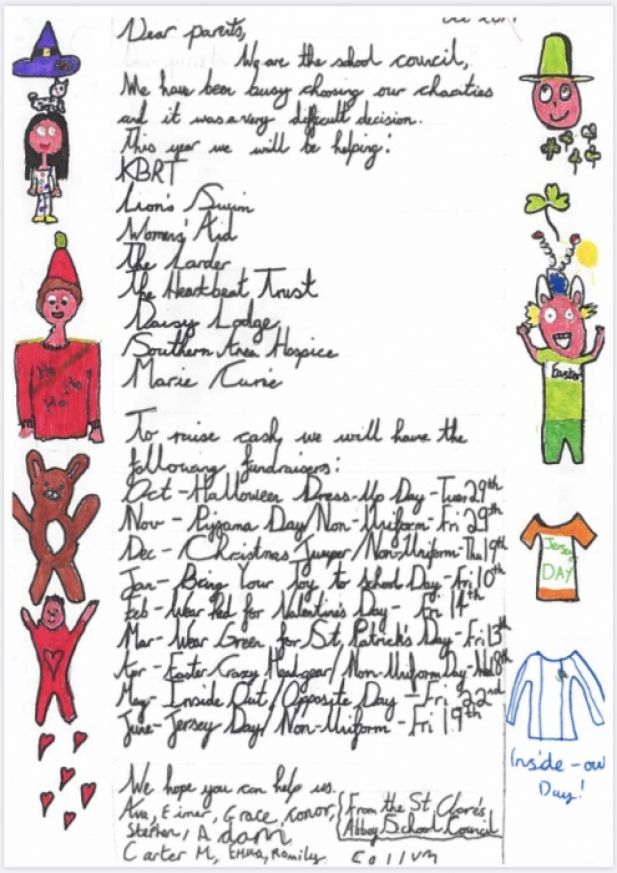 Dear parents,
We are the school council,
We have been busy choosing our charities
and it was a very difficult decision.
This year we will be helping:
KBRT
Lion's Swim
Womens' Aid
The Larder
The Heartbeat Trust
Daisy Lodge
Southern Area Hospice
Marie Curie
To raise cash we will have the
following fundraisers:
Oct - Halloween Dress-Up Day - Tues 29th
Nov - Pyjama Day/Non-Uniform - Fri 29th
Dec - Christmas Jumper/Non-Uniform - Thu 19th
Jan - Bring Your Toy to School Day - Fri 10th
Feb - Wear Red for Valentine's Day - Fri 14th
Mar - Wear Green for St. Patrick's Day - Fri 13th
Apr - Easter Crazy Headgear/Non-Uniform Day - Wed 8th
May - Inside Out/Opposite Day - Fri 22nd
June - Jersey Day/Non-Uniform - Fri 19th
We hope you can help us.
Ava, Eimer, Grace, Conor,
Stephen, Adam
Carter M, Emma, Romily
Callum
From the St Clare's
Abbey School Council
Ho Ho
Ho
Easter
Jersey
DAY
Inside-ou
Day!